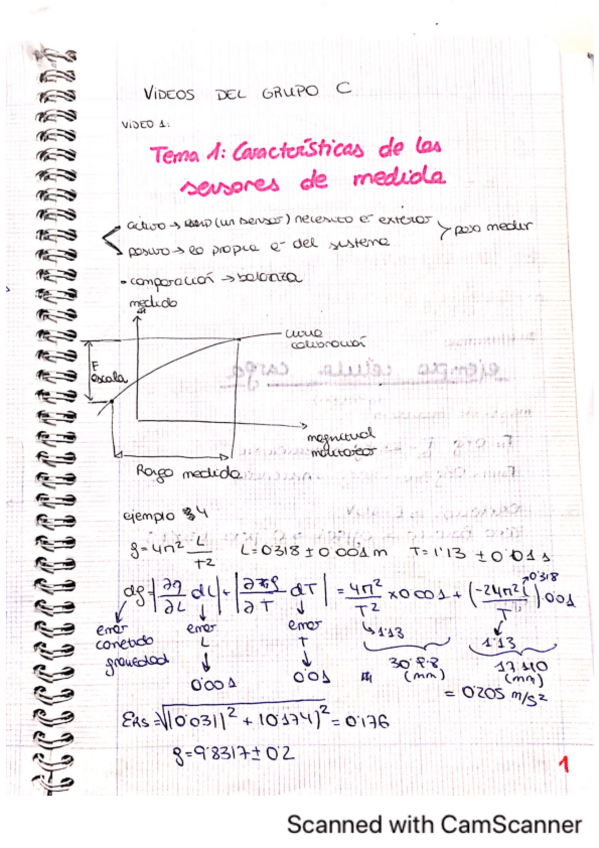 VIDEOS DEL GRUPO C
VIDEO 1:
Tema 1: Características de los
sensores de medida
activo → (un sensor) necesito e- exterior
pasivo → la propia e- del sistema
para medir
• comparación → balanza
medida
curva
calibración
F
escala
magnitud
Rango medida
ejemplo 4
g = 4π² L/T² L = 0'318 ± 0'001 m T = 1'13 ± 0'01 s
dg = |∂g/∂L dL| + |∂g/∂T dT| = 4π²/T² x 0'001 + (-24π²L/T) 0'01
0'318
error
cometido
gravedad
error
L
0'001
error
T
0'01
1'13
(mm)
1'13
(mm)
= 0'205 m/s²
ERS = √(0'031)² + (0'174)² = 0'176
g = 9'8317 ± 0'2
1
Scanned with CamScanner